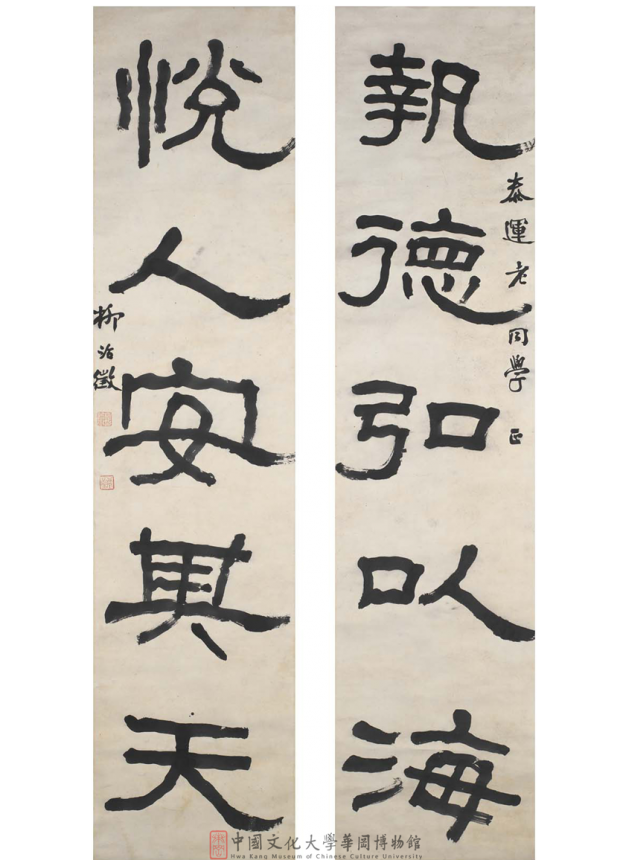 泰運老同學 正
執德弘㕥海
悅人安其天
柳詒徵
中國文化大學華岡博物館
Hwa Kang Museum of Chinese Culture University